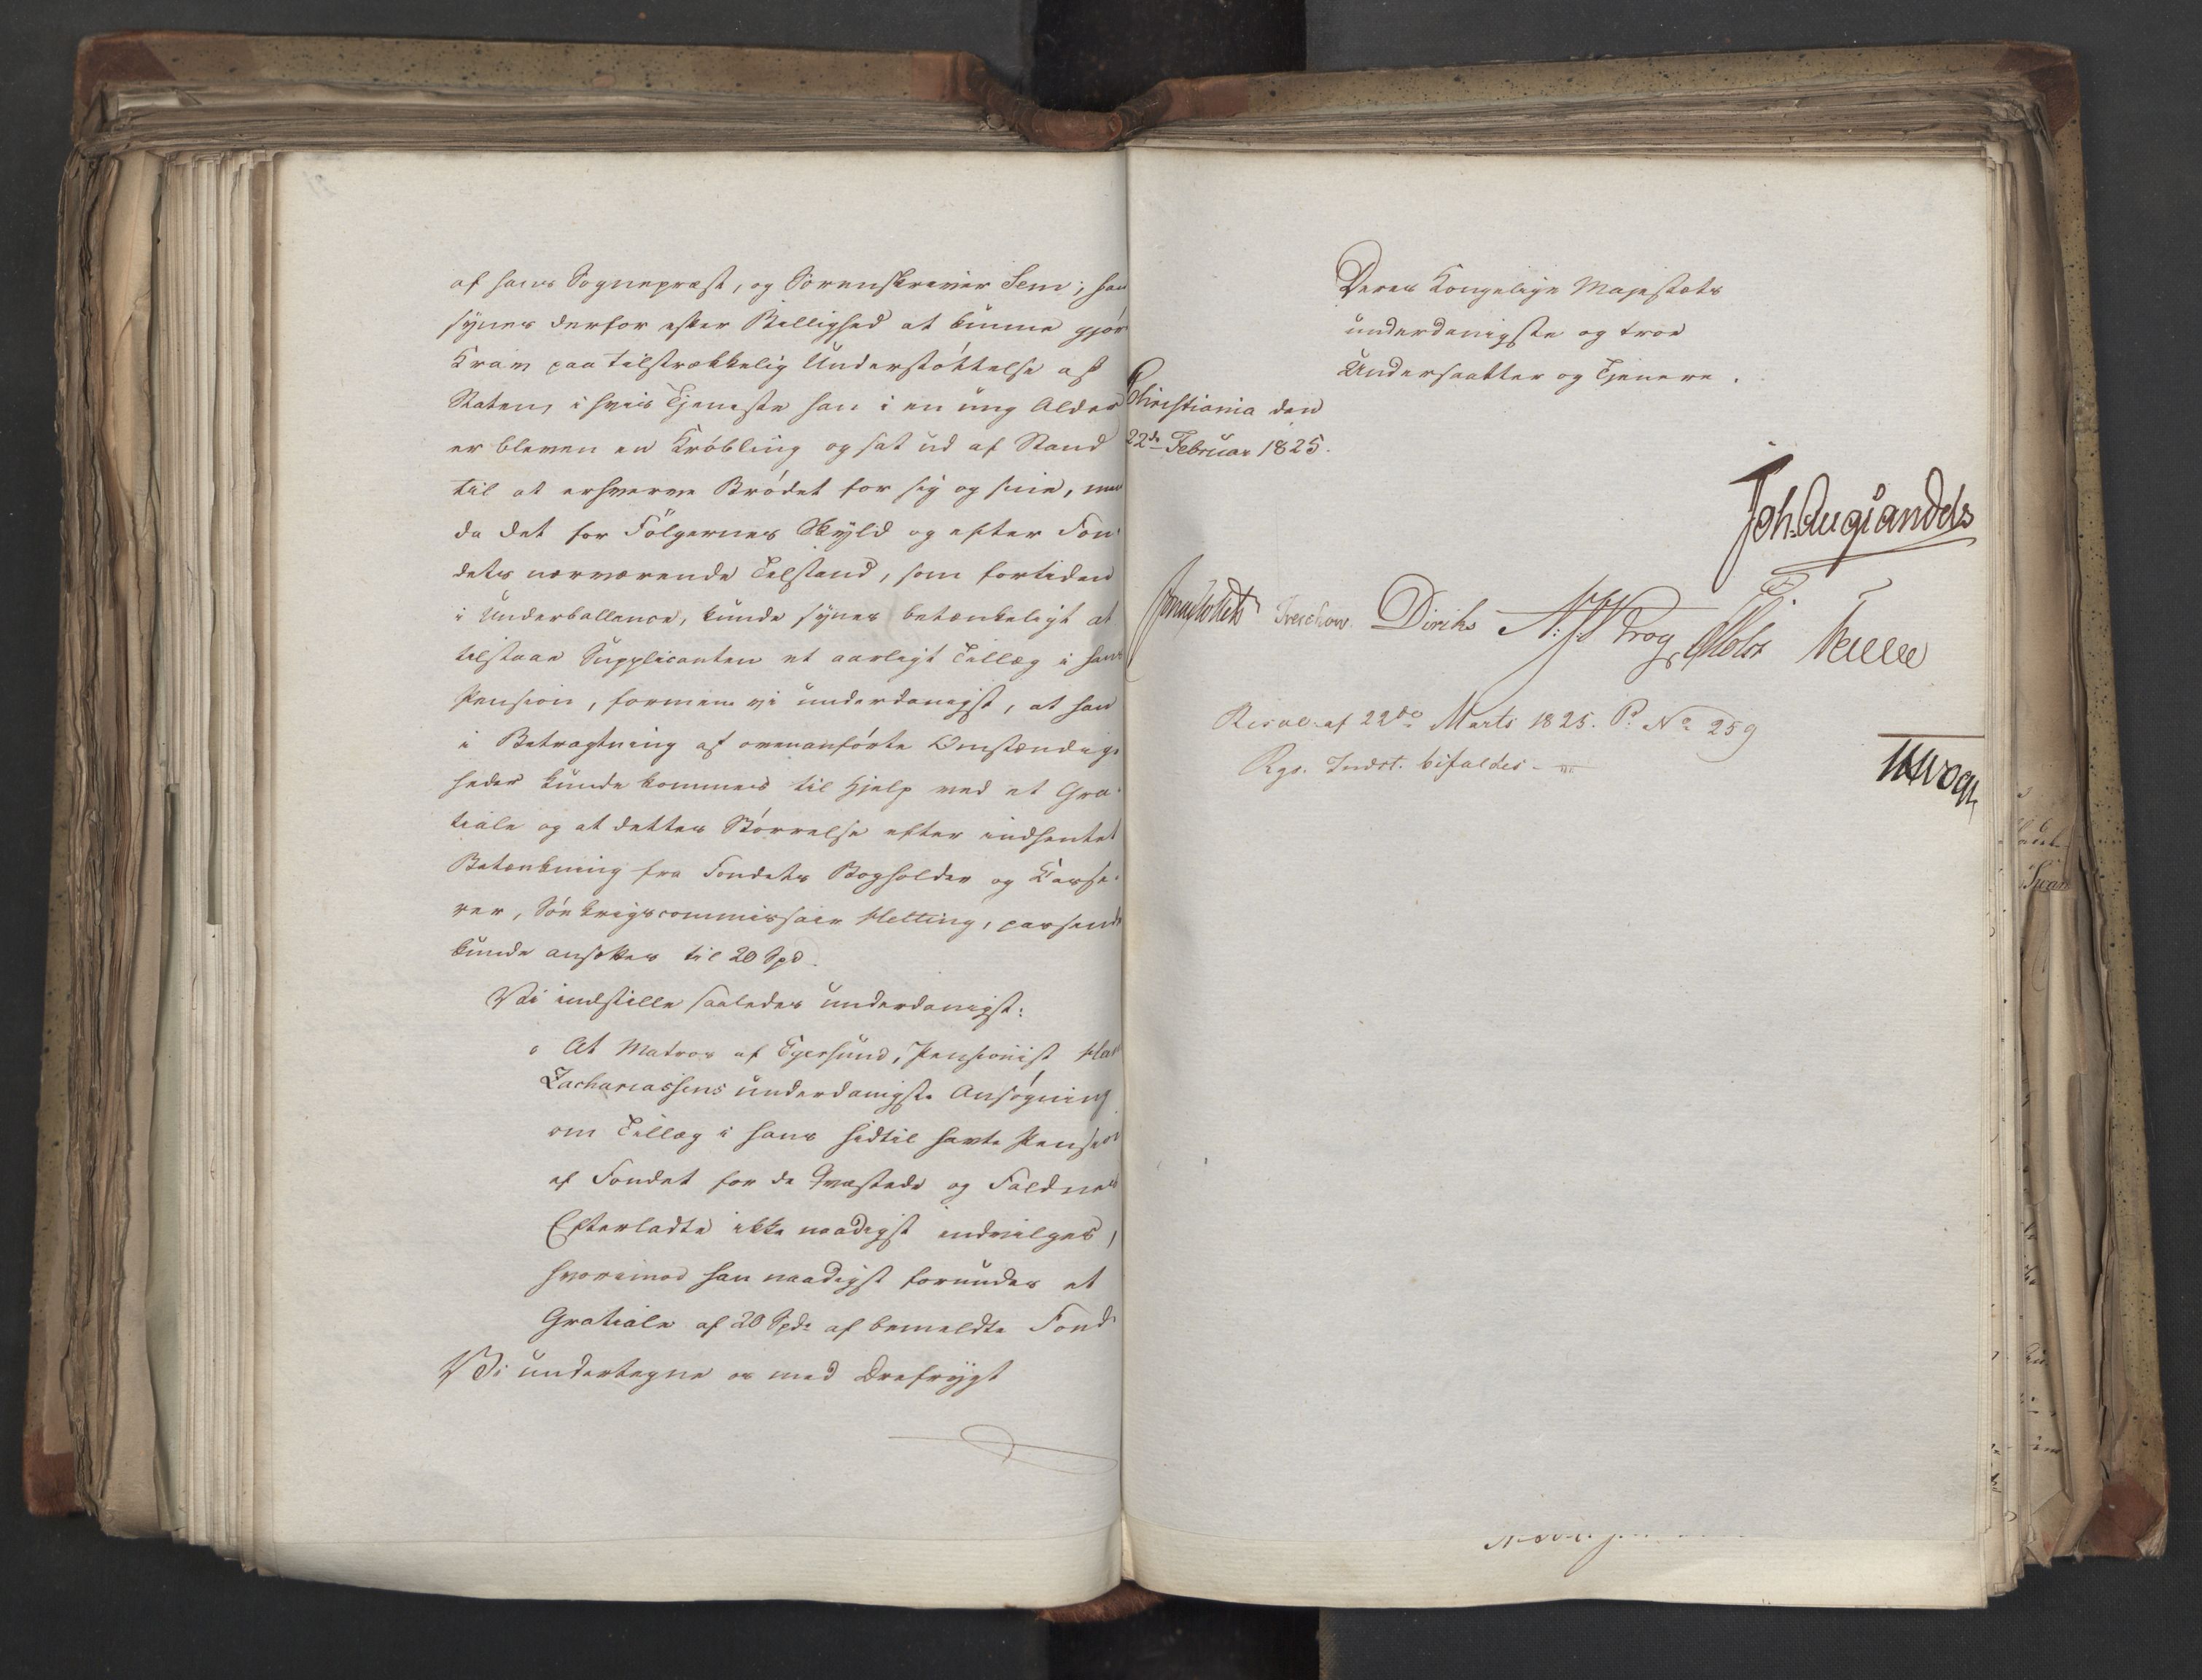 af hans Sognepræst, og Sorenskriver Sem; han
synes derfor efter Billighed at kunne gjøre
Krav paa tilstrækkelig Understøttelse af
Staten, i hvis Tjeneste han i en ung Alder
er bleven en Krøbling og sat ud af Stand
til at erhverve Brødet for sig og sine, men
da det for Følgernes Skyld og efter Fon-
dets nærværende Tilstand, som fortiden
i Underballance, kunde synes betænkeligt at
tilstaae Supplicanten et aarligt Tillæg i hans
Pension, formene vi underdanigst, at han
i Betragtning af ovenanførte Omstændig-
heder kunde kommes til Hjelp med et Gra-
tiale og at dettes Størrelse efter indhentet
Betænkning fra Fondets Bogholder og Casse-
rer, Søekrigscommissair Hetting, passende
kunde ansættes til 20 Spd.
Vi indstille saaledes underdanigst:
At Matros af Egersund, Pensionist
Zachariassens underdanigste Ansøgning
om Tillæg i hans hidtil havte Pension
af Fondet for de Qvæstede og Faldnes
Efterladte ikke naadigst indvilges,
hvorimod han naadigst forundes et
Gratiale af 20 Spd. af bemeldte Fond.
Vi undertegne os med Ærefrygt
Deres Kongelige Majestæts
underdanigste og troe
Undersaatter og Tjenere.
Christiania den
22de Februar 1825.
Joh. Aug. Sandels
Sommerhielm Treschow. Diriks N: J: Krog Motzfeldt
Resol. af 22de Marts 1825. P. No 259
Rgs. Indst. bifaldes.